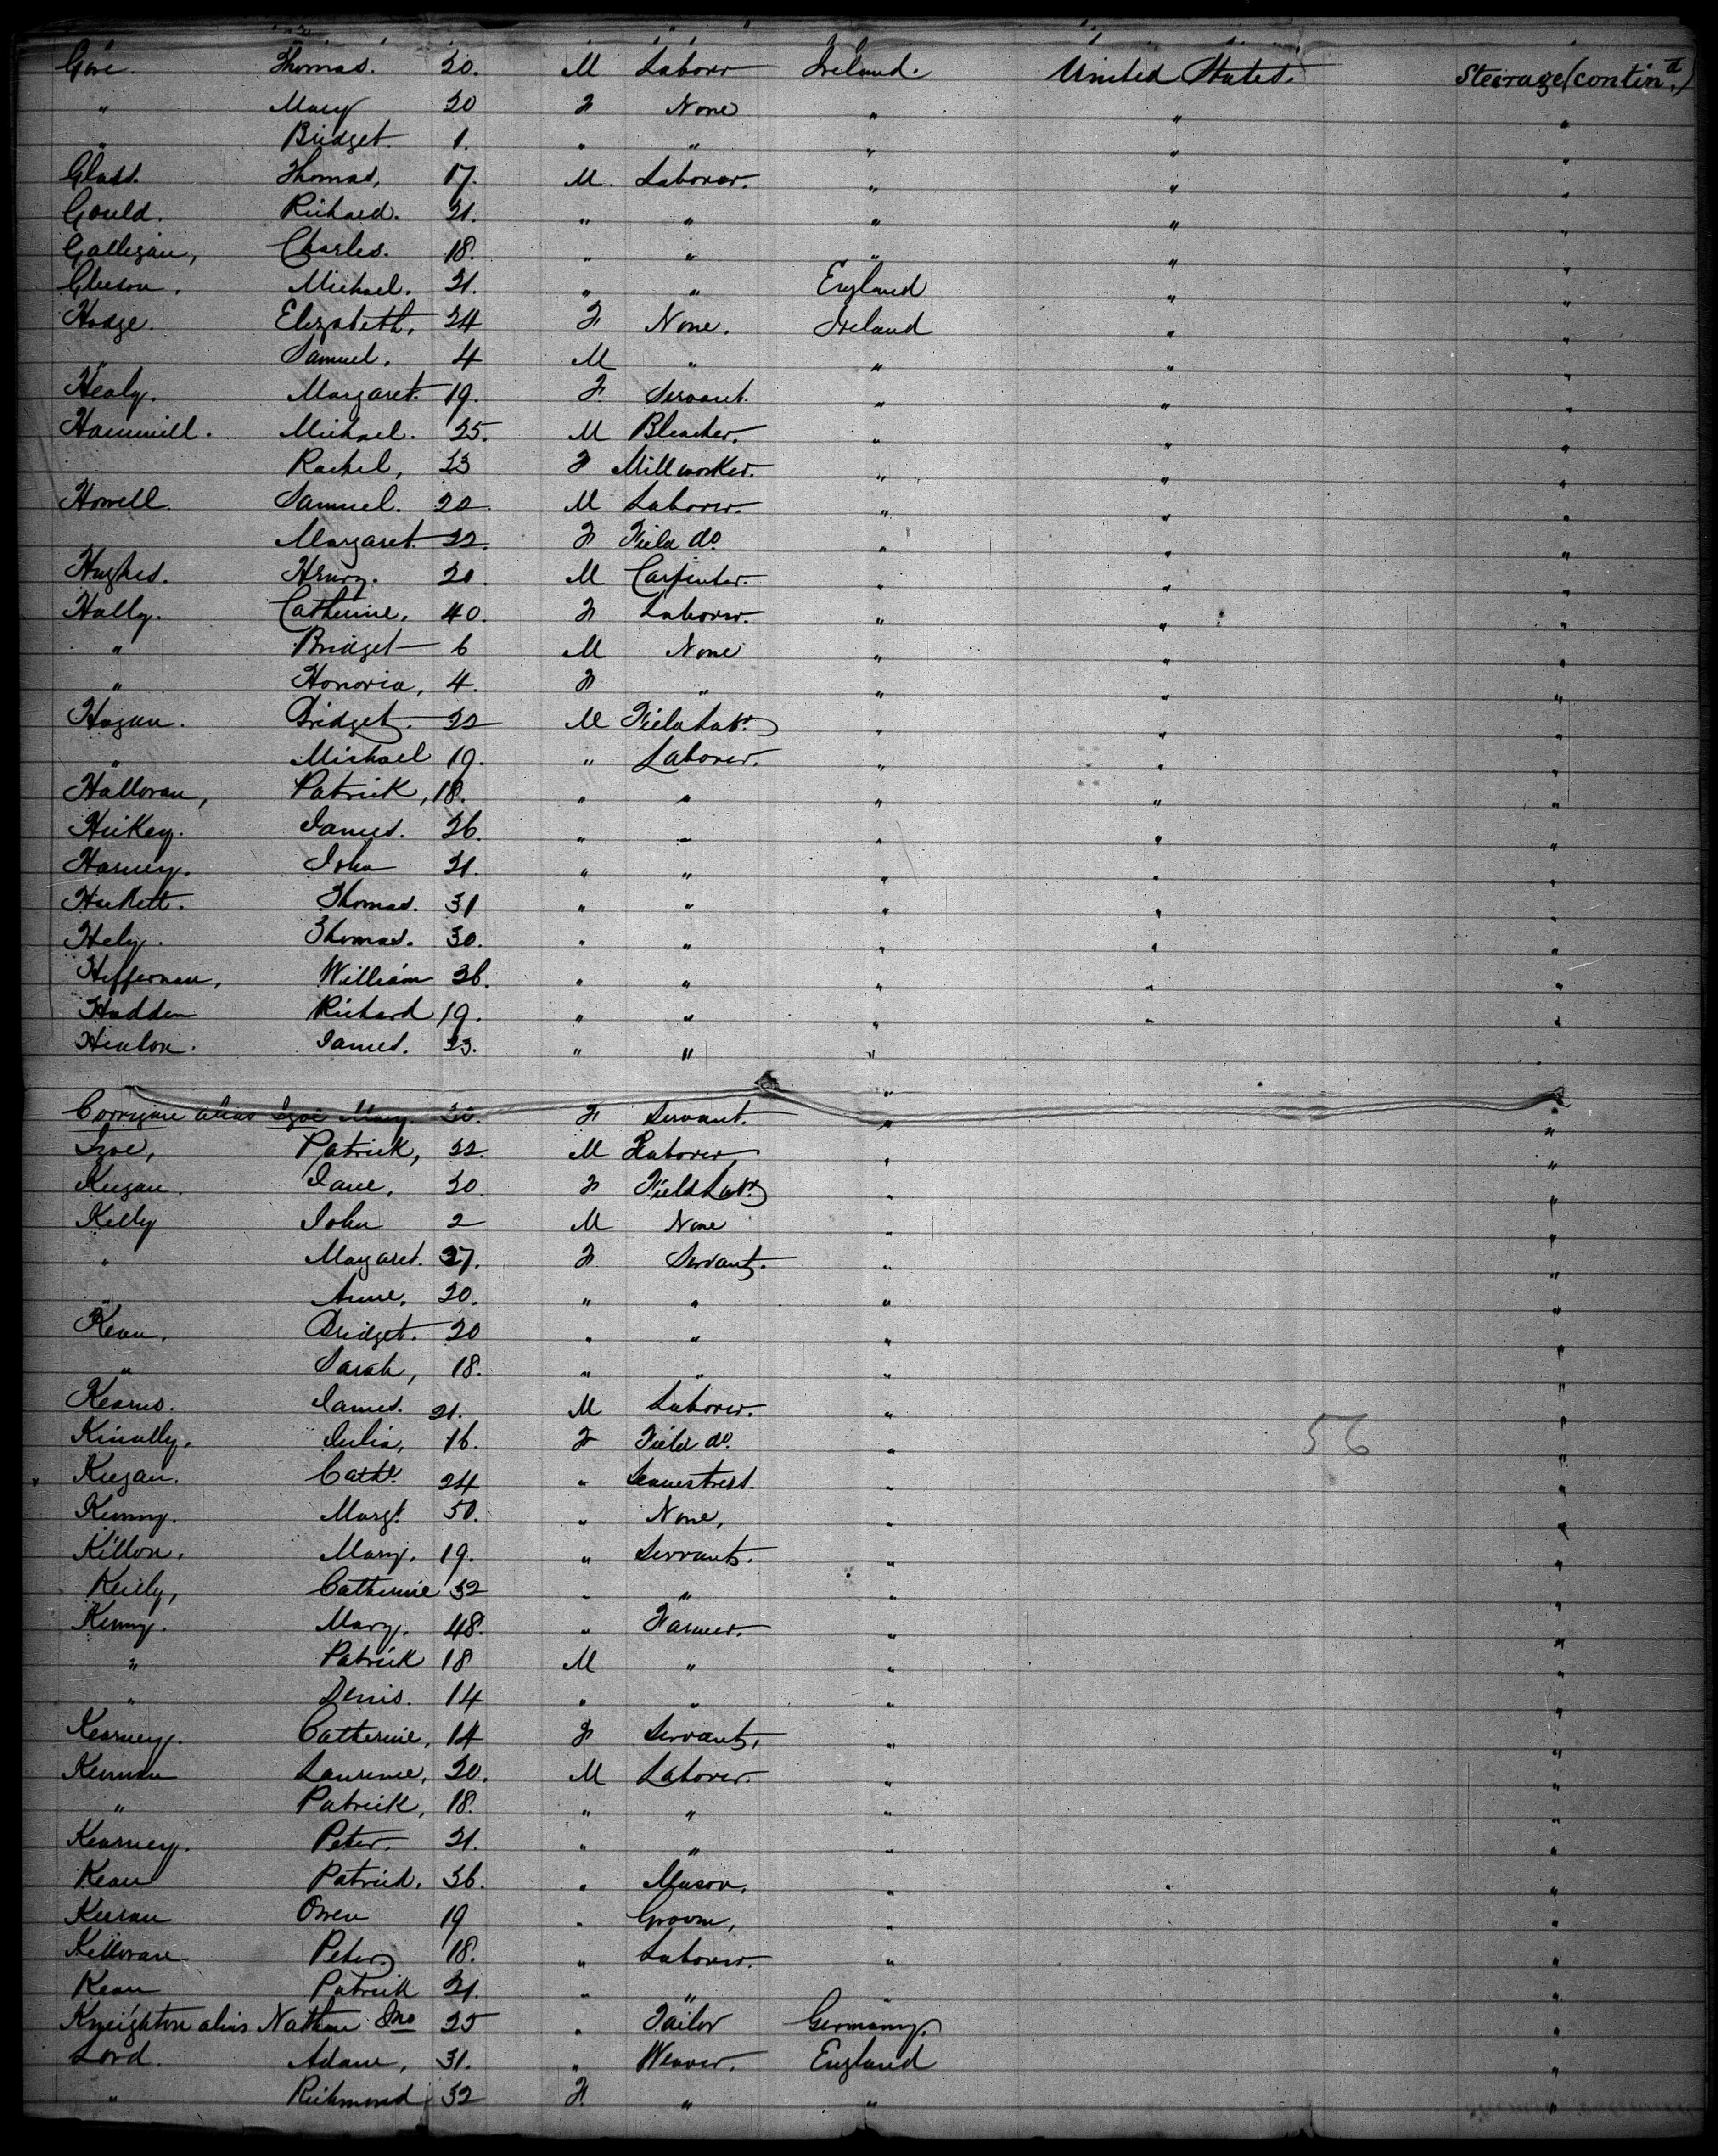 Gore. Thomas. 20. M Laborer Ireland. United States. Steerage (contind.)
" Mary 20 F None " " "
" Bridget. 1. " " " " "
Glass. Thomas, 17. M. Laborer. " " "
Gould. Richard. 21. " " " " "
Galligan, Charles. 18. " " " " "
Gleeson. Michael. 21. " " England " "
Hodge. Elizabeth, 24 F None. Ireland " "
" Samuel. 4 M " " " "
Healy. Margaret. 19. F. Servant. " " "
Hammill. Michael. 25. M Bleacher. " " "
Rachel, 23 F Millworker. " " "
Howell. Samuel. 20. M Laborer. " " "
Margaret. 22. F Field do. " " "
Hughes. Henry. 20. M Carpenter. " " "
Hally. Catherine, 40. F Laborer. " " "
" Bridget 6 M None " " "
" Honoria, 4. F " " " "
Hogan. Bridget. 22 M Field Labr. " " "
" Michael 19. " Laborer. " " "
Halloran, Patrick, 18. " " " " "
Hickey. James. 26. " " " " "
Harney. John 21. " " " " "
Hackett. Thomas. 31 " " " " "
Hely. Thomas. 30. " " " " "
Heffernan, William 36. " " " " "
Hadden Richard 19. " " " " "
James. 23. " " " "
"
Corrigan alias Igoe Mary. 20. F Servant. " "
Igoe, Patrick, 22. M Laborer " "
Keegan. Jane, 20. F Field Labr. " "
Kelly John 2 M None " "
" Margaret. 27. F Servant. " "
" Anne, 20. " " " "
Kean. Bridget. 20 " " " "
" Sarah, 18. " " " "
Kearns. James. 21. M Laborer. " "
Kinally. Julia, 16. F Field do. " 56 "
Keegan. Cathe. 24 " Seamstress. " "
Kenny. Margt. 50. " None, " "
Killon. Mary, 19. " Servant. " "
Reilly, Catherine 32 " " " "
Kenny. Mary. 48. " Farmer. " "
" Patrick 18 M " " "
" Denis. 14 " " " "
Kearney. Catherine, 14 F Servant, " "
Kernan Laurence, 20. M Laborer. " "
" Patrick, 18. " " " "
Kearney. Peter. 21. " " " "
Kean Patrick. 36. " Mason, " "
Keeran Owen 19 " Groom, " "
Killoran Peter 18. " Laborer. " "
Kean Patrick 21. " " " "
Kneighton alias Nathan Jno 25 " Tailor Germany. "
Lord. Adam, 31. " Weaver. England "
" Richmond 32 F. " " "